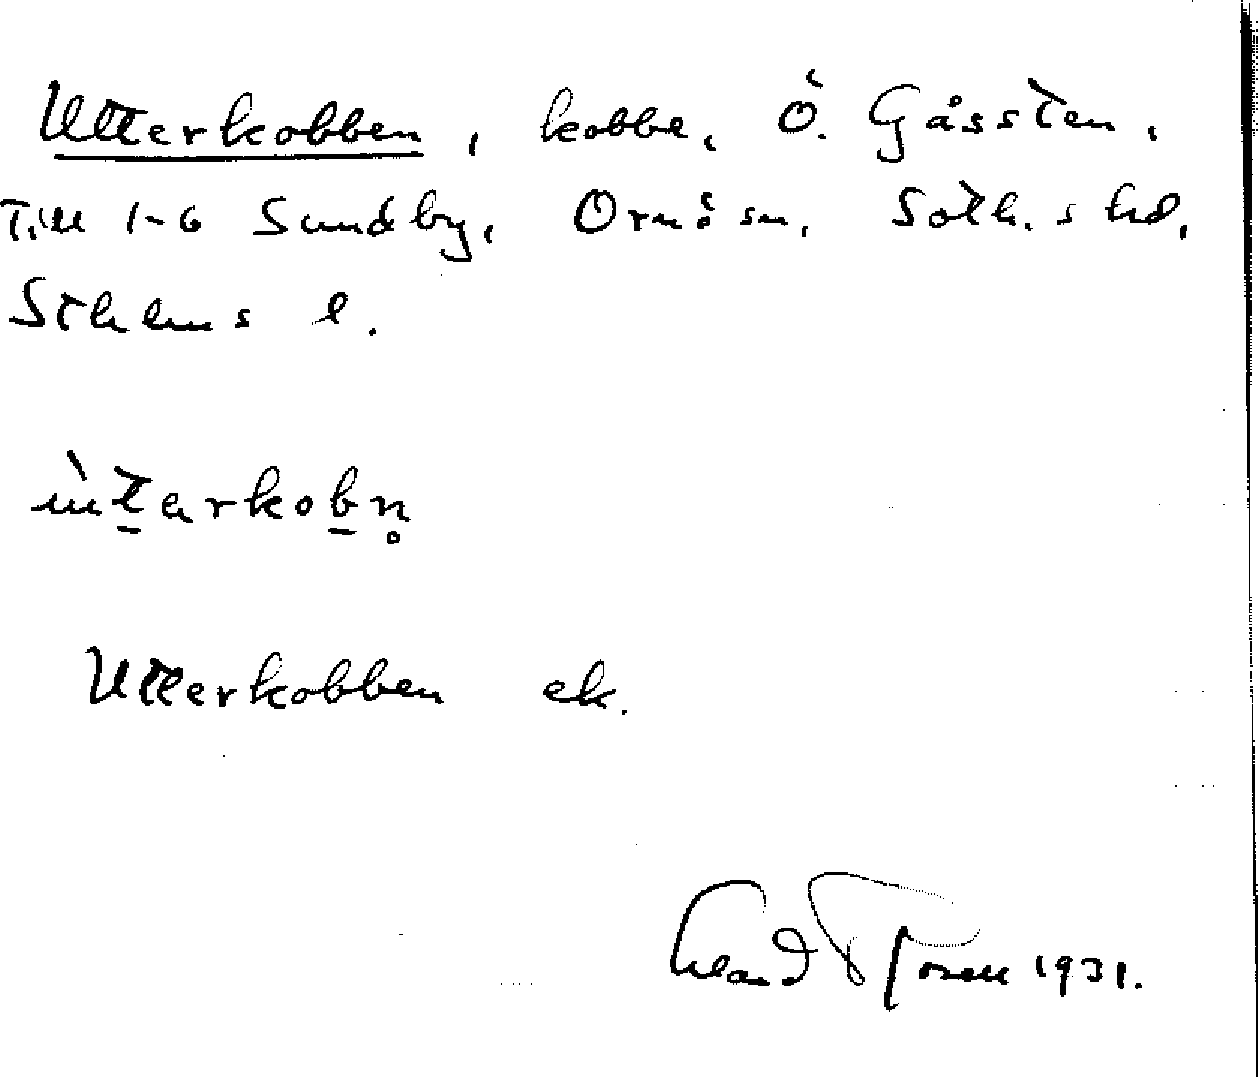 Utterkobben, kobbe, Ö. Gåssten,
Till 1-6 Sundby, Ornö sn, Soth.s hd,
Sthlms l.
Utterkobben ek.
1931.